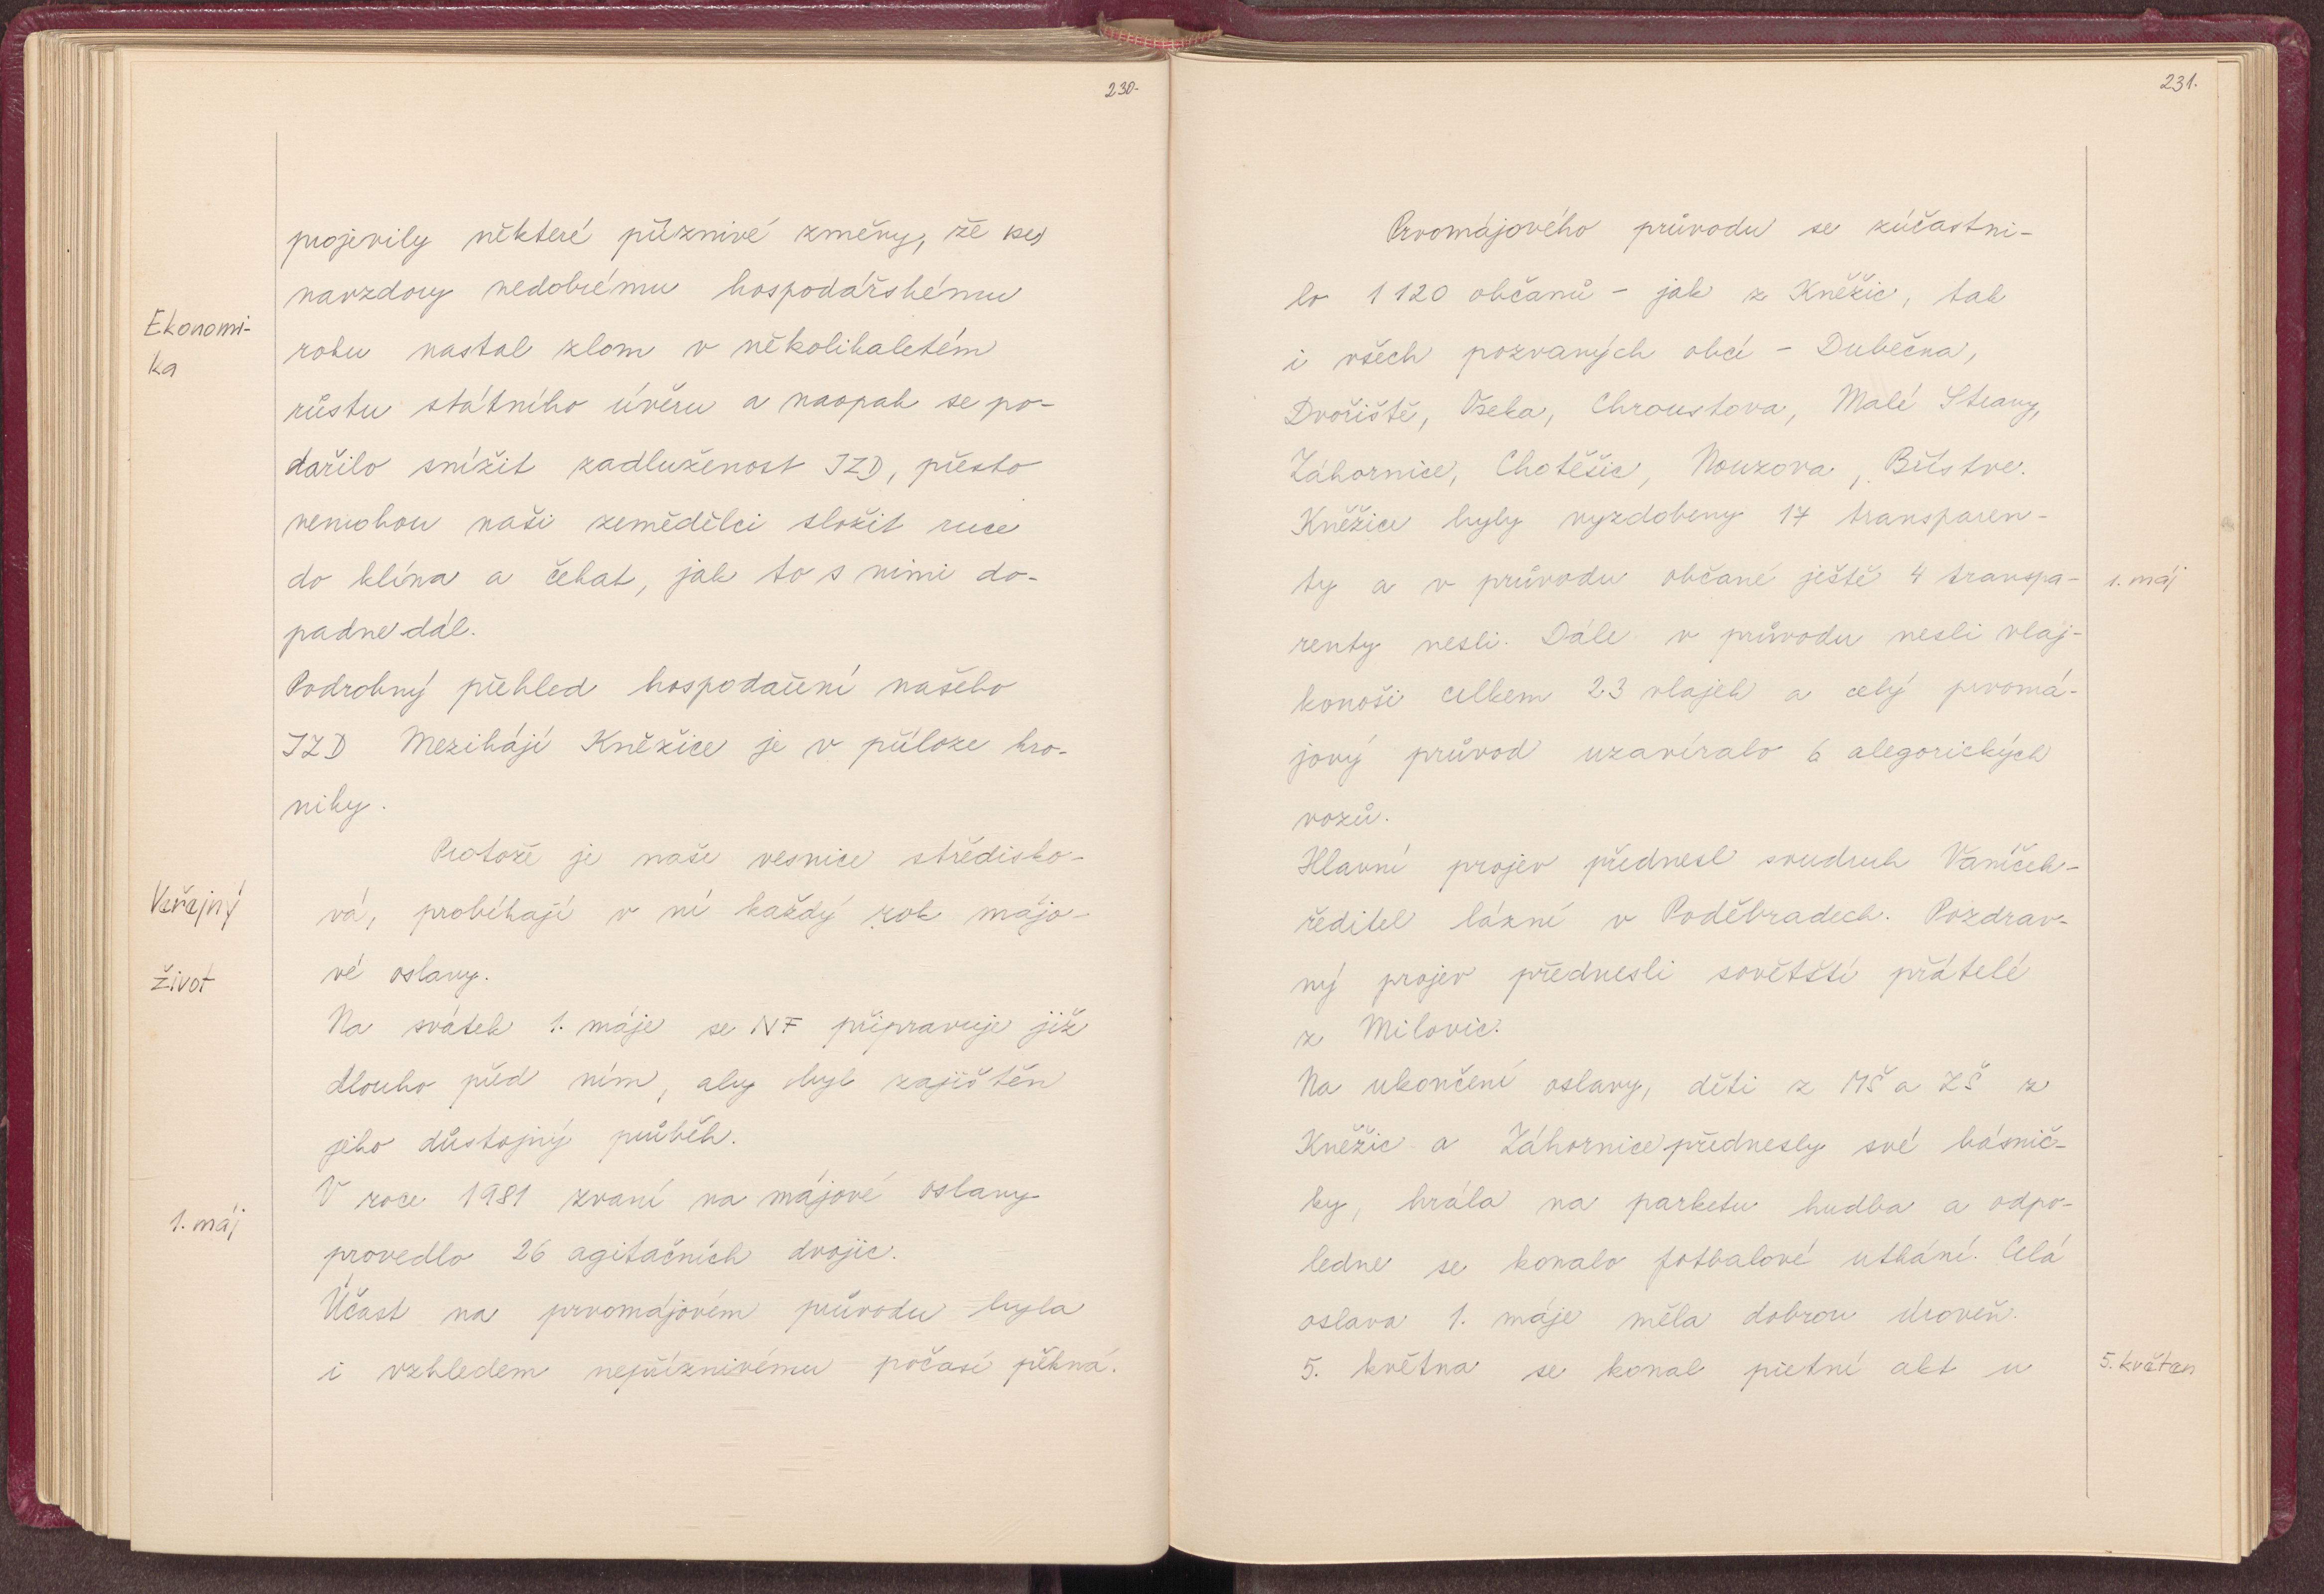 230.
projevily některé příznivé změny, že se
navzdory nedobrému hospodářskému
Ekonomi-
ka
roku nastal zlom v několikaletém
růstu státního úvěru a naopak se po-
dařilo snížit zadluženost JZD, přesto
nemohou naši zemědělci složit ruce
do klína a čekat, jak to s nimi do-
padne dál.
Podrobný přehled hospodaření našeho
JZD Mezihájí Kněžice je v příloze kro-
niky.
Protože je naše vesnice středisko-
Veřejný
život
vá, probíhají v ní každý rok májo-
vé oslavy.
Na svátek 1. máje se NF připravuje již
dlouho před ním, aby byl zajištěn
jeho důstojný průběh.
V roce 1981 zvaní na májové oslavy
1. máj
provedlo 26 agitačních dvojic.
Účast na prvomájovém průvodu byla
i vzhledem nepříznivému počasí pěkná.
231.
Prvomájového průvodu se zúčastni-
lo 1 120 občanů - jak z Kněžic, tak
i všech pozvaných obcí - Dubečna,
Dvořiště, Oseka, Chroustova, Malé Strany,
Záhornice, Chotěšic, Nouzova, Břístve.
Kněžice byly vyzdobeny 17 transparen-
ty a v průvodu občané ještě 4 transpa-
1. máj
renty nesli. Dále v průvodu nesli vlaj-
konoši celkem 23 vlajek a celý prvomá-
jový průvod uzavíralo 6 alegorických
vozů.
Hlavní projev přednesl soudruh Vaníček-
ředitel lázní v Poděbradech. Pozdrav-
ný projev přednesli sovětští přátelé
z Milovic.
Na ukončení oslavy, děti z MŠ a ZŠ z
Kněžic a Záhornice přednesly své básnič-
ky, hrála na parketu hudba a odpo-
ledne se konalo fotbalové utkání. Celá
oslava 1. máje měla dobrou úroveň.
5. května se konal pietní akt u
5. květen